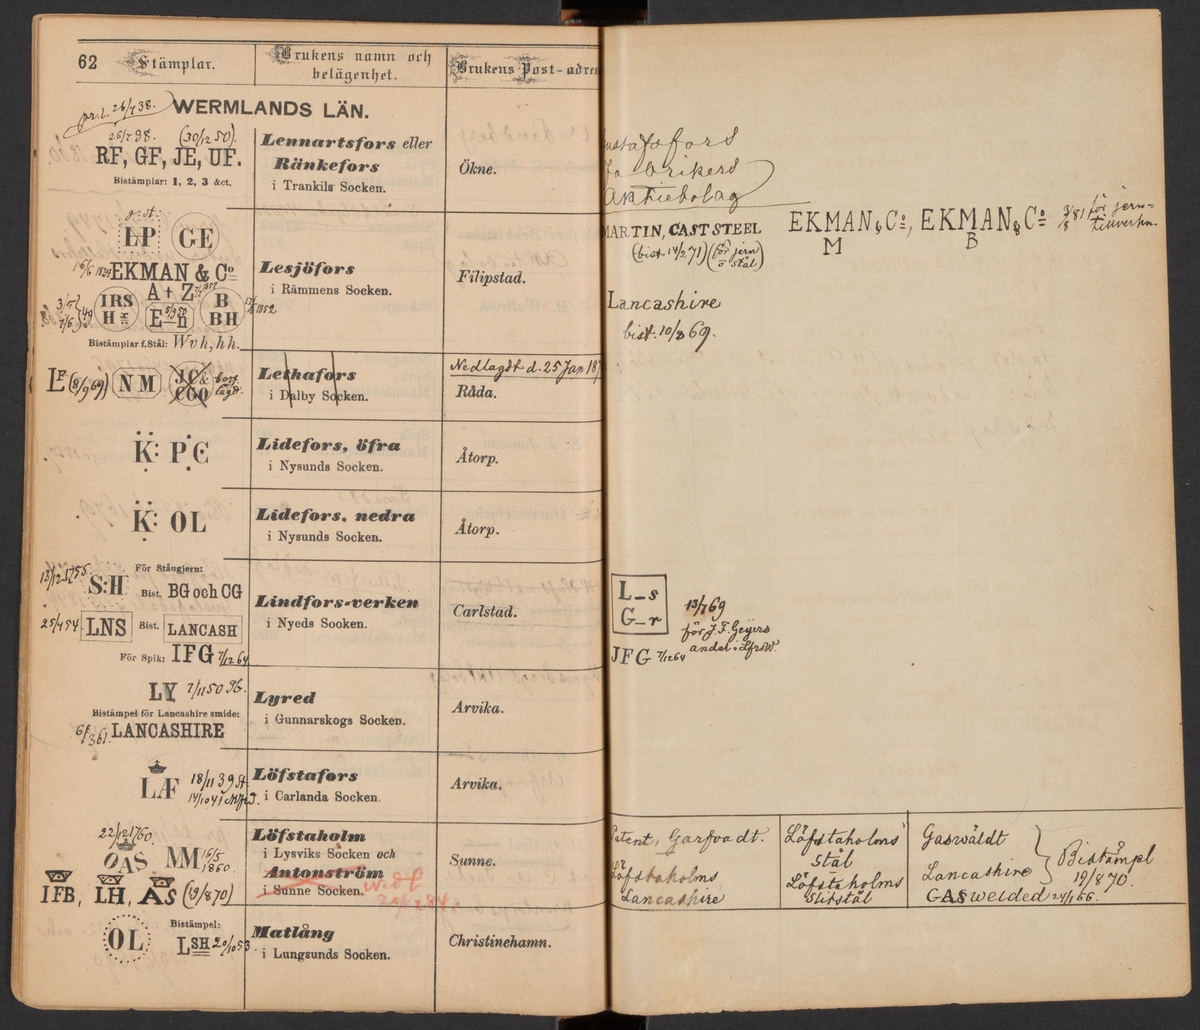 62 Stämplar.
Brukens namn och belägenhet.
Brukens Post-adres
WERMLANDS LÄN.
pr. l. 26/7 38.
26/7 38. (30/12 50).
RF, GF, JE, UF.
Bistämplar: 1, 2, 3 &ct.
Lennartsfors eller
Ränkefors
i Trankils Socken.
Ökne.
LP GE
EKMAN & Co
A + Z
IRS
H
E-n
B
BH
1852
Bistämplar f. Stål: Wvh, hh.
Lesjöfors
i Rämmens Socken.
Filipstad.
LF (8/9 69) NM JC & COO bort lagd.
Lethafors
i Dalby Socken.
Nedlagdt d. 25 Jan 18
Råda.
K: PC
Lidefors, öfra
i Nysunds Socken.
Åtorp.
K: OL
Lidefors, nedra
i Nysunds Socken.
Åtorp.
För Stångjern:
S:H Bist. BG och CG
25/4 54. LNS Bist. LANCASH
För Spik: IFG 7/12 64
Lindfors-verken
i Nyeds Socken.
Carlstad.
LY 7/11 50 96.
Bistämpel för Lancashire smide:
LANCASHIRE
Lyred
i Gunnarskogs Socken.
Arvika.
LÆF 18/11 39 St.
Löfstafors
i Carlanda Socken.
Arvika.
22/12 1760.
OAS MM 16/5 1860.
IFB, LH, AS (19/8 70)
Löfstaholm
i Lysviks Socken och
Antonström
i Sunne Socken.
Sunne.
OL
Bistämpel:
LSH 20/10 53.
Matlång
i Lungsunds Socken.
Christinehamn.
ustafsfors
Fabrikers
Aktiebolag
MARTIN, CAST STEEL
(bist. 14/2 71) (för jern o stål)
EKMAN & Co, EKMAN & Co 3/8 81 för jern-
M B tillverkn.
Lancashire
bist. 10/8 69.
L-s
G-r
13/7 69
för J. F. Geijers
andel i Lfrs W.
JFG 7/12 64
Patent, Garfvadt.
Löfstaholms
Lancashire
Löfstaholms
Stål
Löfstaholms
Slitstål
Gaswäldt
Lancashire
GAS welded 24/1 66.
Bistämpl
19/8 70.